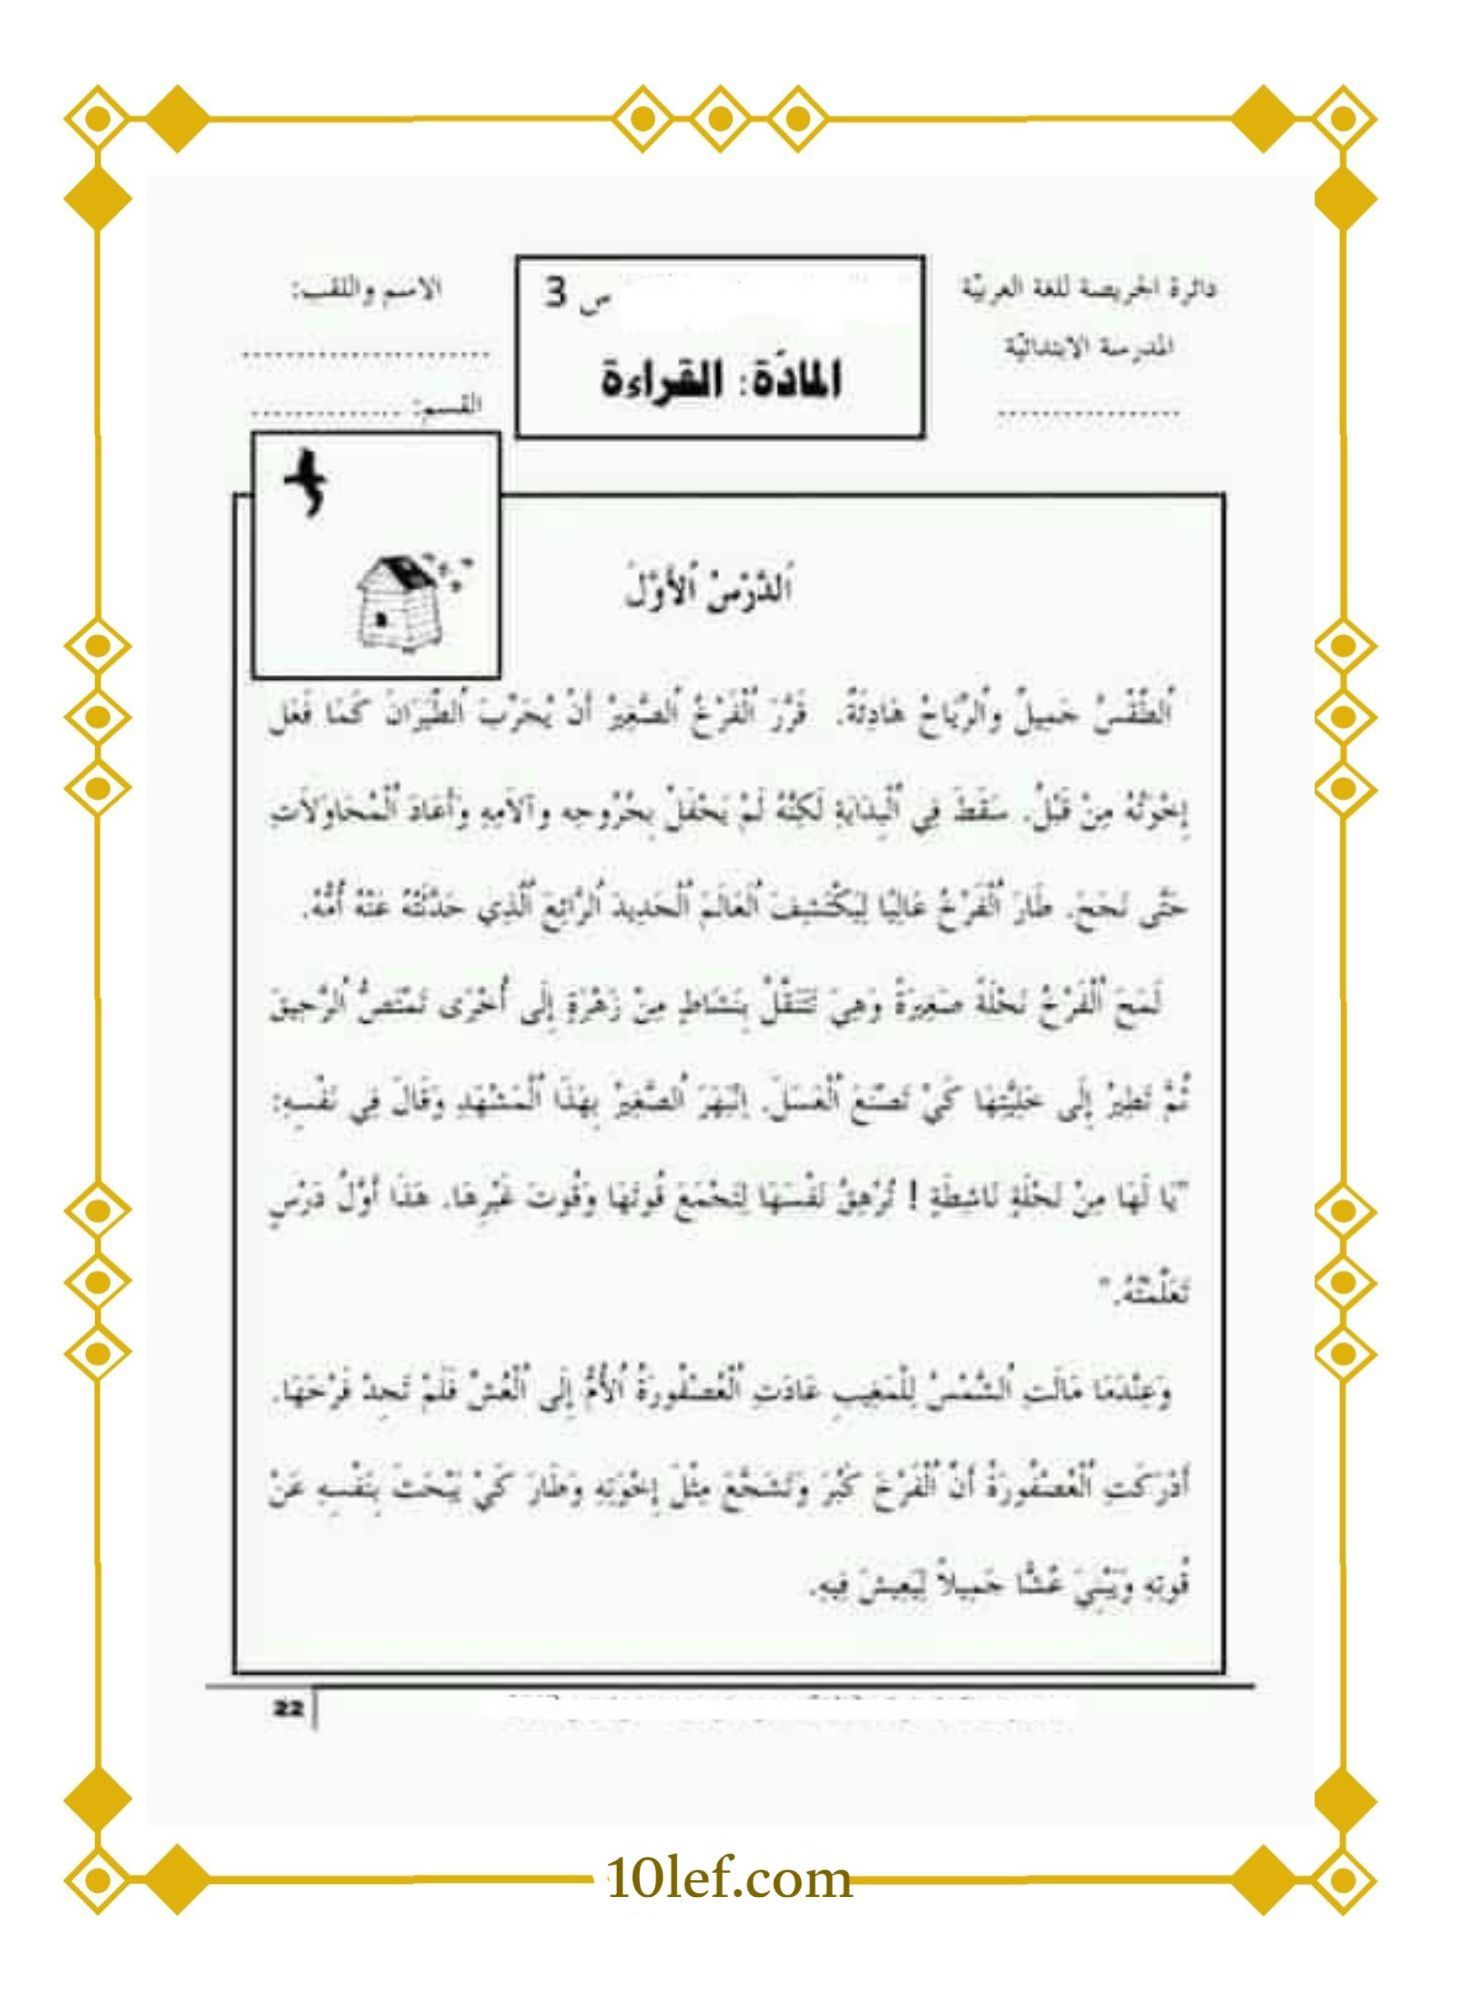 دائرة الحريصة للغة العربيّة
المدرسة الابتدائيّة
....................
س 3
المادّة: القراءة
الاسم واللقب:
........................
القسم: ...............
اَلدَّرْسُ اَلْأَوَّلُ
اَلطَّقْسُ جَمِيلٌ وَاَلرِّيَاحُ هَادِئَةٌ. قَرَّرَ اَلْفَرْخُ اَلصَّغِيرُ أَنْ يُجَرِّبَ اَلطَّيَرَانَ كَمَا فَعَلَ
إِخْوَتُهُ مِنْ قَبْلُ. سَقَطَ فِي اَلْبِدَايَةِ لَكِنَّهُ لَمْ يَحْفَلْ بِجُرُوحِهِ وَآلَامِهِ وَأَعَادَ اَلْمُحَاوَلَاتِ
حَتَّى نَجَحَ. طَارَ اَلْفَرْخُ عَالِيًا لِيَكْتَشِفَ اَلْعَالَمَ اَلْجَدِيدَ اَلرَّائِعَ اَلَّذِي حَدَّثَتْهُ عَنْهُ أُمُّهُ.
لَمَحَ اَلْفَرْخُ نَحْلَةً صَغِيرَةً وَهِيَ تَتَنَقَّلُ بِنَشَاطٍ مِنْ زَهْرَةٍ إِلَى أُخْرَى تَمْتَصُّ اَلرَّحِيقَ
ثُمَّ تَطِيرُ إِلَى خَلِيَّتِهَا كَيْ تَصْنَعَ اَلْعَسَلَ. اِنْبَهَرَ اَلصَّغِيرُ بِهَذَا اَلْمَشْهَدِ وَقَالَ فِي نَفْسِهِ:
"يَا لَهَا مِنْ نَحْلَةٍ نَاشِطَةٍ ! تُرْهِقُ نَفْسَهَا لِتَجْمَعَ قُوتَهَا وَقُوتَ غَيْرِهَا. هَذَا أَوَّلُ دَرْسٍ
تَعَلَّمْتُهُ."
وَعِنْدَمَا مَالَتِ اَلشَّمْسُ لِلْمَغِيبِ عَادَتِ اَلْعُصْفُورَةُ اَلْأُمُّ إِلَى اَلْعُشِّ فَلَمْ تَجِدْ فَرْخَهَا.
أَدْرَكَتِ اَلْعُصْفُورَةُ أَنَّ اَلْفَرْخَ كَبُرَ وَتَشَجَّعَ مِثْلَ إِخْوَتِهِ وَطَارَ كَيْ يَبْحَثَ بِنَفْسِهِ عَنْ
قُوتِهِ وَيَبْنِيَ عُشًّا جَمِيلاً لِيَعِيشَ فِيهِ.
22
10lef.com